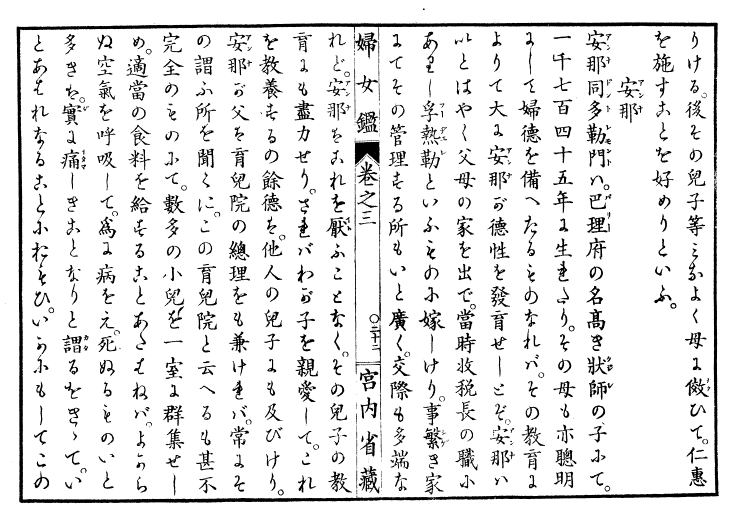 りける。後その兒子等ミなよく母に傚ひて。仁惠
を施すことを好めりといふ。
安那
安那同多勒門ハ。巴理府の名髙き狀師の子にて。
一千七百四十五年に生れたり。その母も亦聰明
にして婦德を備へたるものなれバ。その教育に
よりて大に安那が德性を發育せしとぞ。安那ハ
いとはやく父母の家を出で。當時收税長の職に
ありし孚熱勒といふものに嫁しけり。事繁き家
にてその管理する所もいと廣く。交際も多端な
婦女鑑 卷之三 ○二十二 宮内省藏
れど。安那はこれを厭ふことなく。その兒子の教
育にも盡力せり。されバわが子を親愛して。これ
を教養するの餘德を。他人の兒子にも及びけり。
安那が父は育兒院の總理をも兼けれバ。常にそ
の謂ふ所を聞くに。この育兒院と云へるも甚不
完全のものにて。數多の小兒を一室に群集せし
め。適當の食料を給することあたはねバ。よから
ぬ空氣を呼吸して。爲に病をえ。死ぬるものいと
多きは。實に痛しきことなりと謂るをきゝて。い
とあはれなることにおもひ。いかにもしてこの